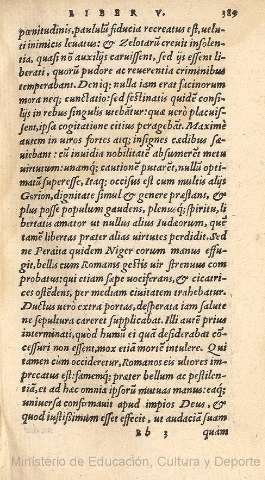 LIBER V. 389
pœnitudinis, paululũ fiducia recreatus est, velu-
ti inimicus leuatus: & Zelotarũ creuit insolen-
tia, quasi nõ auxilijs caruissent, sed ijs essent li-
berati, quorũ pudore ac reuerentia criminibus
temperabant. Deniq; nulla iam erat facinorum
mora neq; cunctatio: sed festinatis quidẽ consi-
lijs in rebus singulis vtebãtur: quæ verò placuis-
sent, ipsa cogitatione citius peragebãt. Maximè
autem in viros fortes atq; insignes cædibus sæ-
uiebant: cũ inuidia nobilitatẽ absumerẽt metu
virtutum: vnamq; cautionẽ putarẽt, nullũ opti-
matũ superesse. Itaq; occisus est cum multis alijs
Gorion, dignitate simul & genere præstans, &
plus posse populum gaudens, plenusq; spiritu, li-
bertatis amator vt nullus alius Iudæorum, quẽ
tamẽ libertas præter alias virtutes perdidit. Sed
ne Peraita quidem Niger eorum manus effu-
git, bellis cum Romanis gestis vir strenuus com-
probatus: qui etiam sæpe vociferans, & cicatri-
ces ostẽdens, per mediam ciuitatem trahebatur.
Ductus verò extra portas, desperata iam salute
ne sepultura careret supplicabat. Illi autẽ prius
interminati, quòd humũ ei quã desiderabat cõ-
cessuri non essent, mox etiã mortẽ intulere. Qui
tamen cùm occideretur, Romanos eis vltores im-
precatus est: famemq; præter bellum ac pestilen-
tiã, et ad hæc omnia ipsorũ mutuas manus: eaq;
vniuersa confirmauit apud impios Deus, &
quod iustissimum esset effecit, vt audaciã suam
Bb 3 quam
Ministerio de Educación, Cultura y Deporte